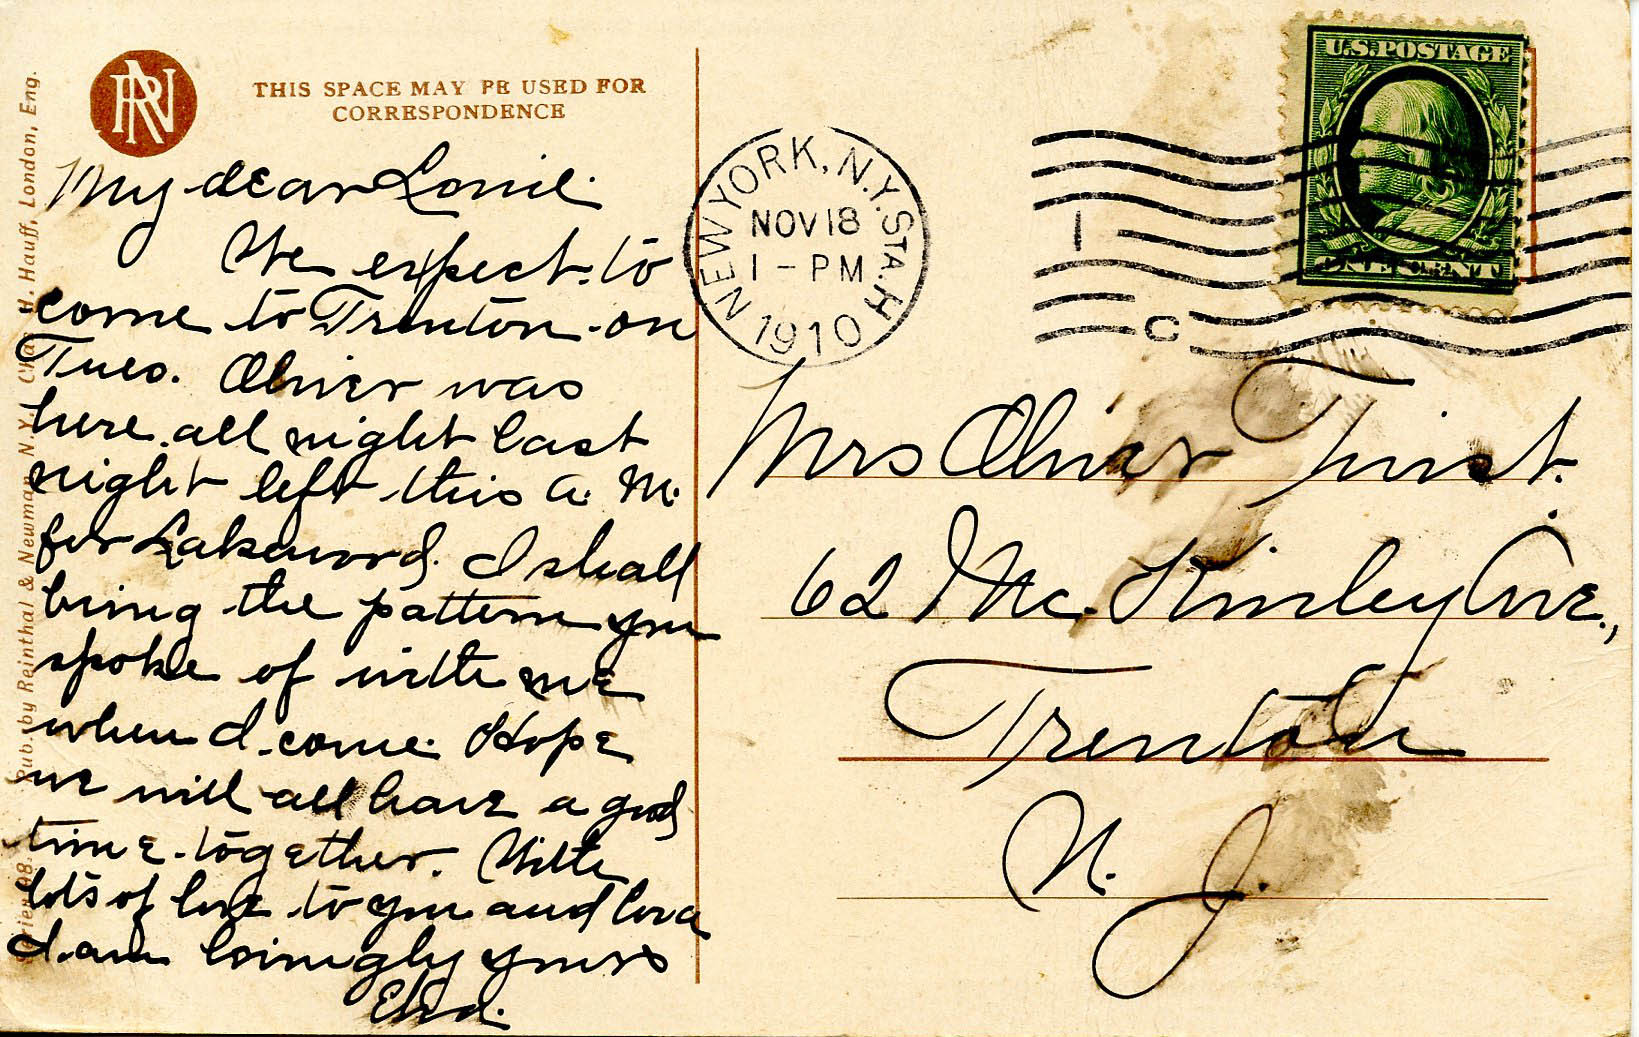 RN
THIS SPACE MAY BE USED FOR
CORRESPONDENCE
My dear Lonie.
We expect to
come to Trenton on
Tues. Oliver was
here all night last
night left this A. M.
for Lakewood. I shall
bring the pattern you
spoke of with me
when I come. Hope
we will all have a good
time together. With
lots of love to you and
I am lovingly yours
Pub. by Reinthal & Newman, N.Y. H. Hauff, London, Eng.
NEW YORK, N.Y. STA. H
NOV 18
1 - PM
1910
1
C
U.S. POSTAGE
ONE CENT
Mrs Oliver
62 Mc. Kinley Ave.,
Trenton
N. J.